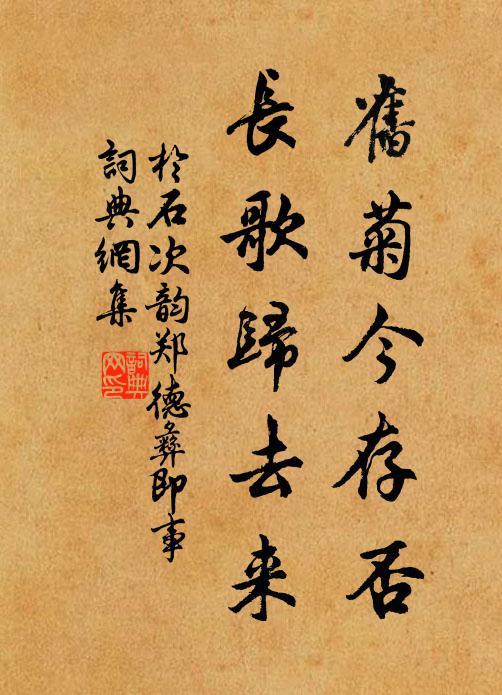 舊菊今存否
長歌歸去来
於石次韵郑德彝即事
詞典網集
詞典
网印